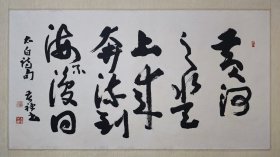 黄河
之水天
上来
奔流到
海不復回
太白诗句
书